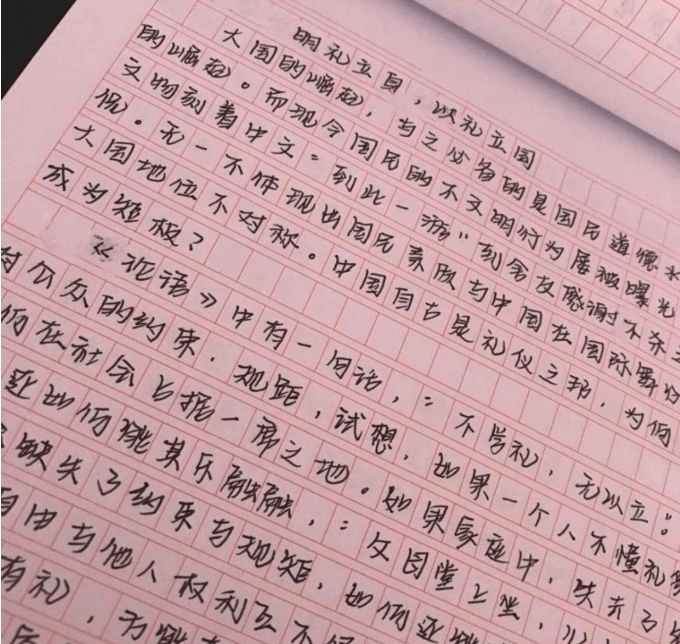 明礼立身，以礼立国
大国的崛起，与之必备的是国民道德水
的崛起。而现今国民的不文明行为屡被曝光
文物刻着中文“到此一游”到舍友感谢不杀之
况。无一不体现出国民素质与中国在国际舞台
大国地位不对称。中国自古是礼仪之邦，为何
成为短板？
《论语》中有一句话，“不学礼，无以立。”
对公众的约束，规距，试想，如果一个人不懂礼
何在社会占据一席之地。如果家庭中，失去了
还如何能其乐融融，“父母堂上坐，
缺失了约束与规矩，如何还能
自由与他人权利互不
有礼，为